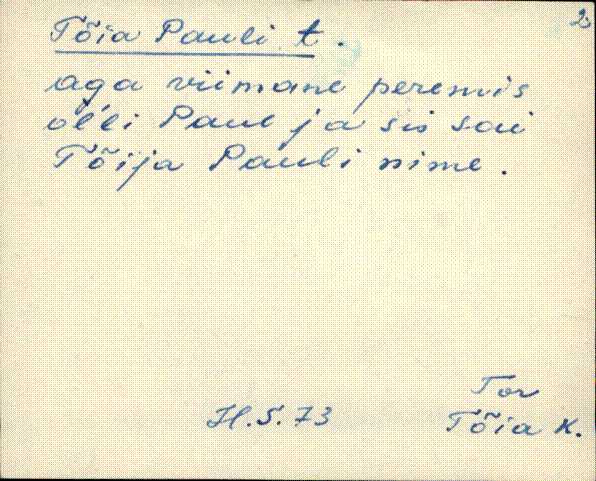 2.
Tõia Pauli t.
aga viimane peremis
ol'li Paul ja sis sai
Tõija Pauli nime.
H.S. 73
Tor
Tõia K.